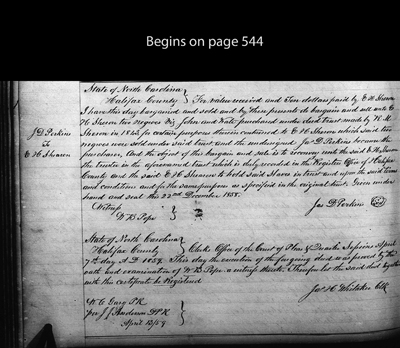 Begins on page 544
State of North Carolina
Halifax County } For value received and Ten dollars paid by E H
I have this day bargained and sold and by these presents do bargain and sell unto E
H two negroes Viz John and Kate purchased under deed trust made by
in 1842 for certain purposes therein contained to E H which said two
negroes were sold under said trust and the undersigned Jas D Perkins became the
purchaser, And the object of this bargain and sale is to convey unto the said E H
the trustee in the aforesaid trust which is duly recorded in the Registers Office of Halifax
County and the said E H to hold said slaves in trust and upon the said terms
and conditions and for the same purposes as specified in the original trust. Given under
hand and seal this 22nd December 1858.
J D Perkins
To
E H
Witness
W B Pope
Jas D Perkins Seal
State of North Carolina
Halifax County } Clerks Office of the Court of Pleas & Quarter Sessions April
7th day A D 1859. This day the execution of the foregoing deed was proved by the
oath and examination of W B Pope a witness thereto. Therefore let the said deed together
with this certificate be Registered
Jas H Whitaker Clk
W C Gary P R
per J J Anderson D P R
April 1859